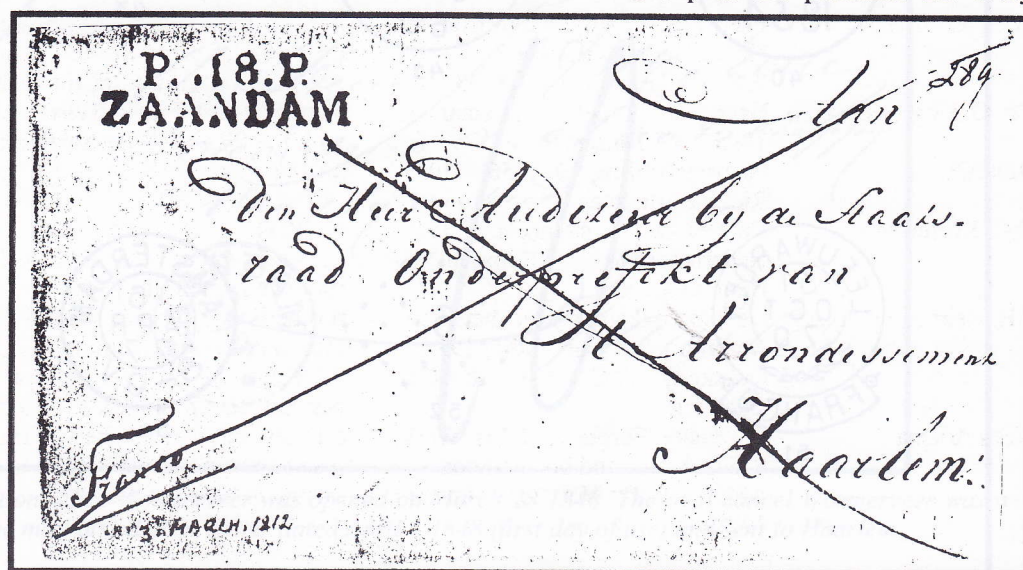 P. .18.P.
ZAANDAM
289
Aan
den Heer Auditeur by de Staats-
raad Onderprefekt van
't Arrondissement
Haarlem.
Franco
3 MARCH. 1812